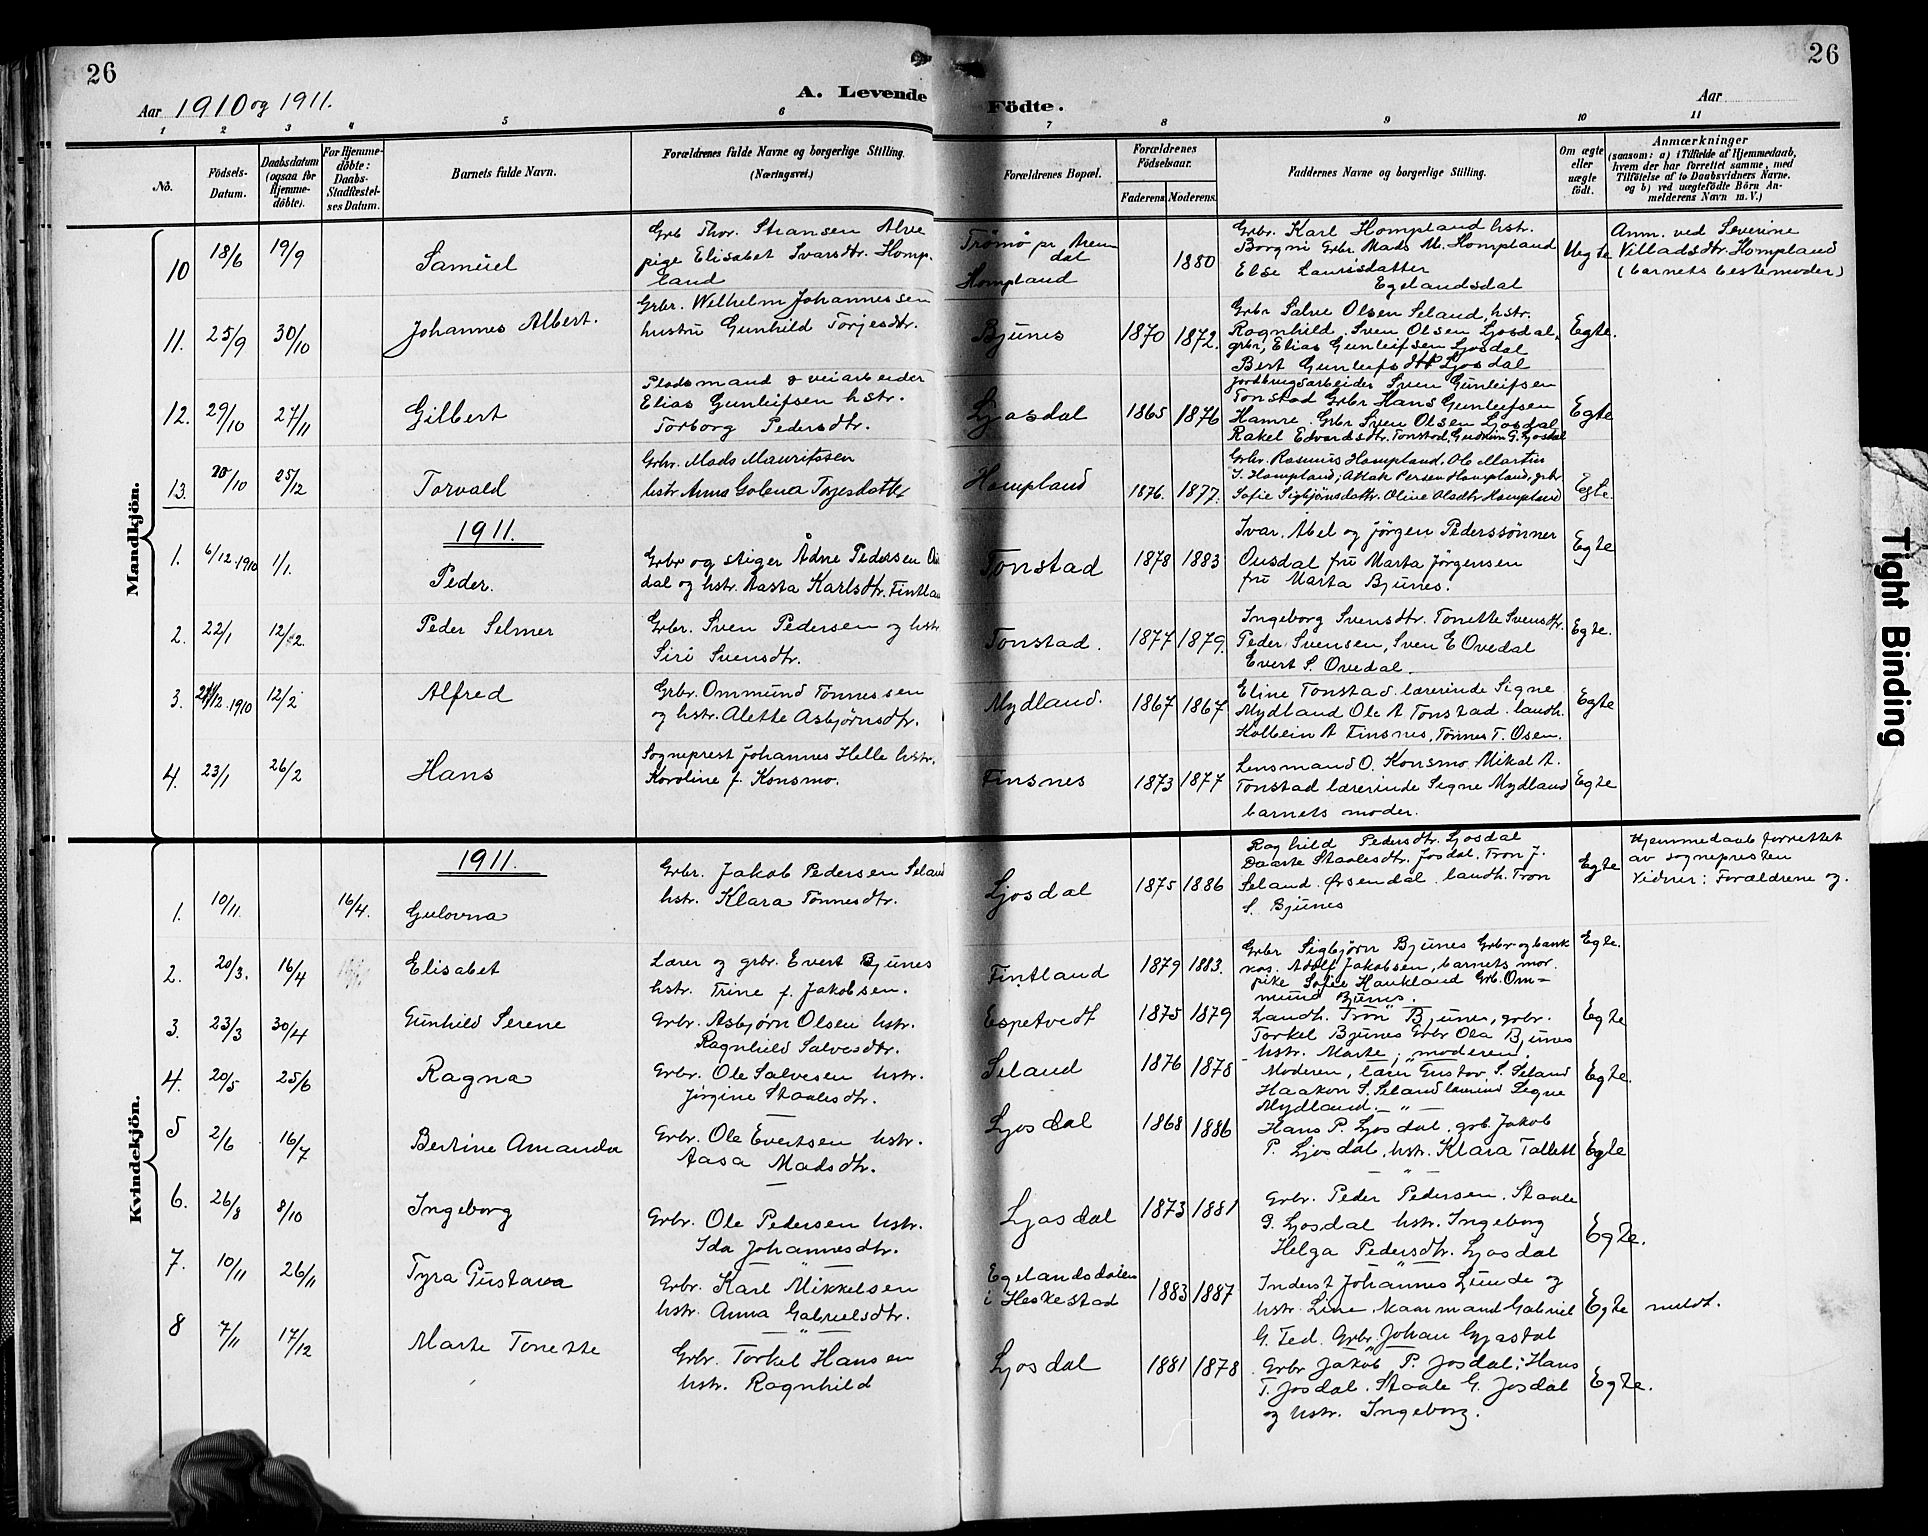 26
26
Aar 1910 og 1911.
A. Levende Födte.
Aar
1 2 3 4 5 6 7 8 9 10 11
No.
Födsels-Datum.
Daabsdatum (ogsaa for Hjemme-döbte).
For Hjemme-döbte: Daabs-Stadfæstel-ses Datum.
Barnets fulde Navn.
Forældrenes fulde Navne og borgerlige Stilling. (Næringsvei.)
Forældrenes Bopæl.
Forældrenes Födselsaar.
Faderens Moderens.
Faddernes Navne og borgerlige Stilling.
Om ægte eller uægte födt.
Anmærkninger
(saasom: a) i Tilfælde af Hjemmedaab, hvem der har forrettet samme, med Tilföielse af to Daabsvidners Navne, og b) ved uægtefödte Börn An-melderens Navn m. V.)
Mandkjön.
10 18/6 19/9 Samuel
Grb Thor. Stiansen Alve
pige Elisabet Ivarsdtr. Homp-
land
Tromø pr. Aren
dal
Hompland
1880
Grbr. Karl Hompland hstr.
Borgni Grbr. Mads M. Hompland
Else Laurisdatter
Egelandsdal
Uegte
Anm. ved Severine
Villadsdtr. Hompland
(barnets bestemoder)
11. 25/9 30/10 Johannes Albert.
Grbr. Wilhelm Johannessen
hustru Gunhild Torjesdtr.
Bjunes 1870 1872.
Grbr Salve Olsen Seland, hstr.
Ragnhild. Sven Olsen Ljosdal,
grbr, Elias Gunleifsen Ljosdal
Bert Gunleifsdtr Ljosdal
Egte.
12. 29/10 27/11 Gilbert
Pladsmand & veiarbeider
Elias Gunleifsen hstr.
Torborg Pedersdtr.
Ljosdal 1865 1876
Jordbrugsarbeider Sven Gunleifsen
Tonstad Grbr Hans Gunleifsen
Hamre. Grbr Sven Olsen Ljosdal
Rakel Edvardsdtr. Tonstad, Gudrun G. Ljosdal
Egte
13. 20/10 25/12 Torvald
Grbr. Mads Mauritssen
hstr Anna Golena Torjesdatter
Hompland 1876. 1877.
Grbr. Rasmus Hompland. Ole Martin
I. Hompland; Aslak Persen Hompland, grbr
Sofie Sigbjørnsdattr. Oline Olsdtr Hompland
Egte.
1911.
1. 6/12.1910 1/1. Peder.
Grbr og stiger Ådne Pedersen Ous
dal og hstr. Aasta Karlsdtr. Fintland
Tonstad 1878 1883
Ivar, Abel og Jørgen Pederssønner
Ousdal fru Marta Jørgensen
fru Marta Bjunes.
Egte
2. 22/1 12/2. Peder Selmer
Grbr. Sven Pedersen og hstr
Siri Svensdtr.
Tonstad. 1877 1879.
Ingeborg Svensdtr. Tonette Svensdtr.
Peder Svensen, Sven E Ovedal
Evert S. Ovedal
Egte.
3. /12.1910 12/2 Alfred
Grbr. Ommund Tønnessen
og hstr. Alette Asbjørnsdtr.
Mydland. 1867 1867
Eline Tonstad. lærerinde Signe
Mydland Ole A Tonstad. landh.
Kolbein A Finsnes, Tønnes T. Osen.
Egte
4. 23/1 26/2 Hans
Sogneprest Johannes Helle hstr.
Karoline f. Konsmo.
Finsnes 1873 1877
Lensmand O. Konsmo. Mikal A.
Tonstad lærerinde Signe Mydland
barnets moder.
Egte
Kvindekjön.
1911.
1. 10/11. 16/4. Gulovna
Grbr. Jakob Pedersen Seland
hstr. Klara Tønnesdtr.
Ljosdal 1875 1886
Ragnhild Pedersdtr. Ljosdal
Daarte Staalesdtr. Josdal. Tron J.
Seland. Ørsendal. landh. Tron
S. Bjunes
Egte
Hjemmedaab forrettet
av sognepresten
Vidner: Forældrene og.
2. 20/3. 16/4 Elisabet
Lærer og grbr. Evert Bjunes
hstr. Trine f. Jakobsen.
Fintland 1879 1883.
Grbr Sigbjørn Bjunes Grbr og bank
kas. Adolf Jakobsen, barnets mor
pike Sofie Haukland Grb. Om-
mund Bjunes.
Egte.
3. 23/3 30/4 Gunhild Serene
Grbr. Asbjørn Olsen hstr.
Ragnhild Salvesdtr.
Espetvedt 1875 1879
Landh. Tron Bjunes, grbr.
Torkel Bjunes Grbr Ola Bjunes
hstr. Marte, moderen.
Egte
4. 20/5 25/6 Ragna
Grbr. Ole Salvesen hstr.
Jørgine Staalesdtr.
Seland 1876 1878
Moderen, lærer Gustav S. Seland
Haakon S. Seland Signe
Mydland.
Egte.
5 2/6 16/7 Bertine Amanda
Grbr. Ole Evertsen hstr.
Aasa Madsdtr.
Ljosdal 1868 1886
Hans P. Ljosdal. grb. Jakob
P. Ljosdal, hstr. Klara
Egte
6. 26/8 8/10 Ingeborg
Grbr. Ole Pedersen hstr.
Ida Johannesdtr.
Ljosdal 1873 1881
Grbr. Peder Pedersen. Staale
G. Ljosdal hstr. Ingeborg
Helga Pedersdtr. Ljosdal
Egte.
7. 10/11 26/11 Tyra Gustava
Grbr. Karl Mikkelsen
hstr. Anna Gabrielsdtr.
Egelandsdalen
i Heskestad
1883 1887
Inderst Johannes Lunde og
hstr. Line Gabriel
G. Ted. Grbr. Johan
Egte meldt.
8 7/11 17/12 Marte Tonette
Grbr. Torkel Hansen
hstr. Ragnhild
Ljosdal 1881 1878
Grbr Jakob P. Josdal; Hans
T. Josdal. Staale G. Josdal
og hstr. Ingeborg.
Egte.
Tight Binding